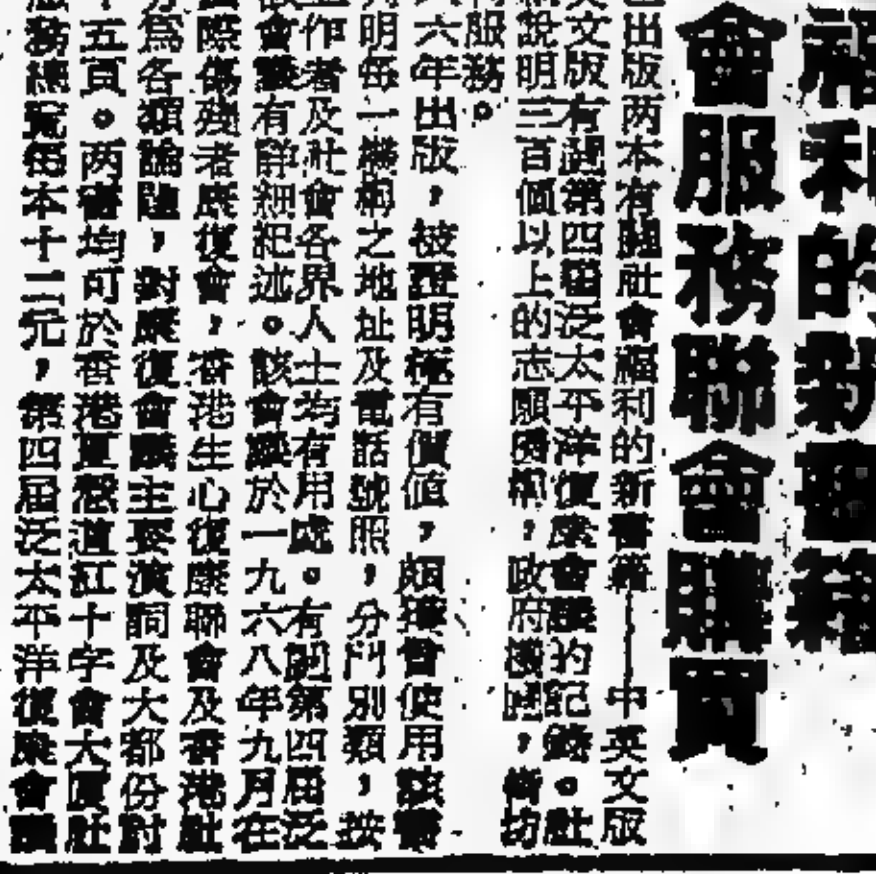 福利的新書籍
會服務聯會購買
出版两本有關社會福利的新書籍——中英文版
英文版有關第四屆泛太平洋復康會議的記錄。社
說明三百個以上的志願機構，政府機關，街坊
服務。
六年出版，被證明極有價值，頗獲曾使用該書
明每一機構之地址及電話號照，分門別類，按
工作者及社會各界人士均有用處。有關第四屆泛
會議有詳細紀述。該會議於一九六八年九月在
國際傷殘者康復會，香港生心復康聯會及香港社
分為各類論題，對康復會議主要演詞及大都份討
十五頁。两書均可於香港夏慤道紅十字會大廈社
服務總覽每本十二元，第四屆泛太平洋復康會議